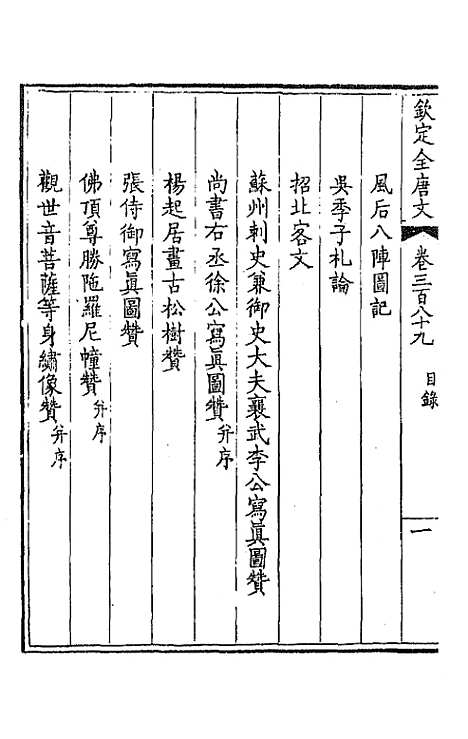 欽定全唐文 卷三百八十九 目錄 一
風后八陣圖記
吳季子札論
招北客文
蘇州刺史兼御史大夫襄武李公寫眞圖贊
尚書右丞徐公寫眞圖贊并序
楊起居畫古松樹贊
張侍御寫眞圖贊
佛頂尊勝陁羅尼幢贊并序
觀世音菩薩等身繡像贊并序